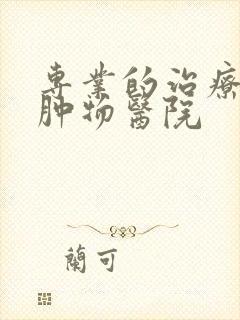 專業的治療
肿物醫院
蘭可